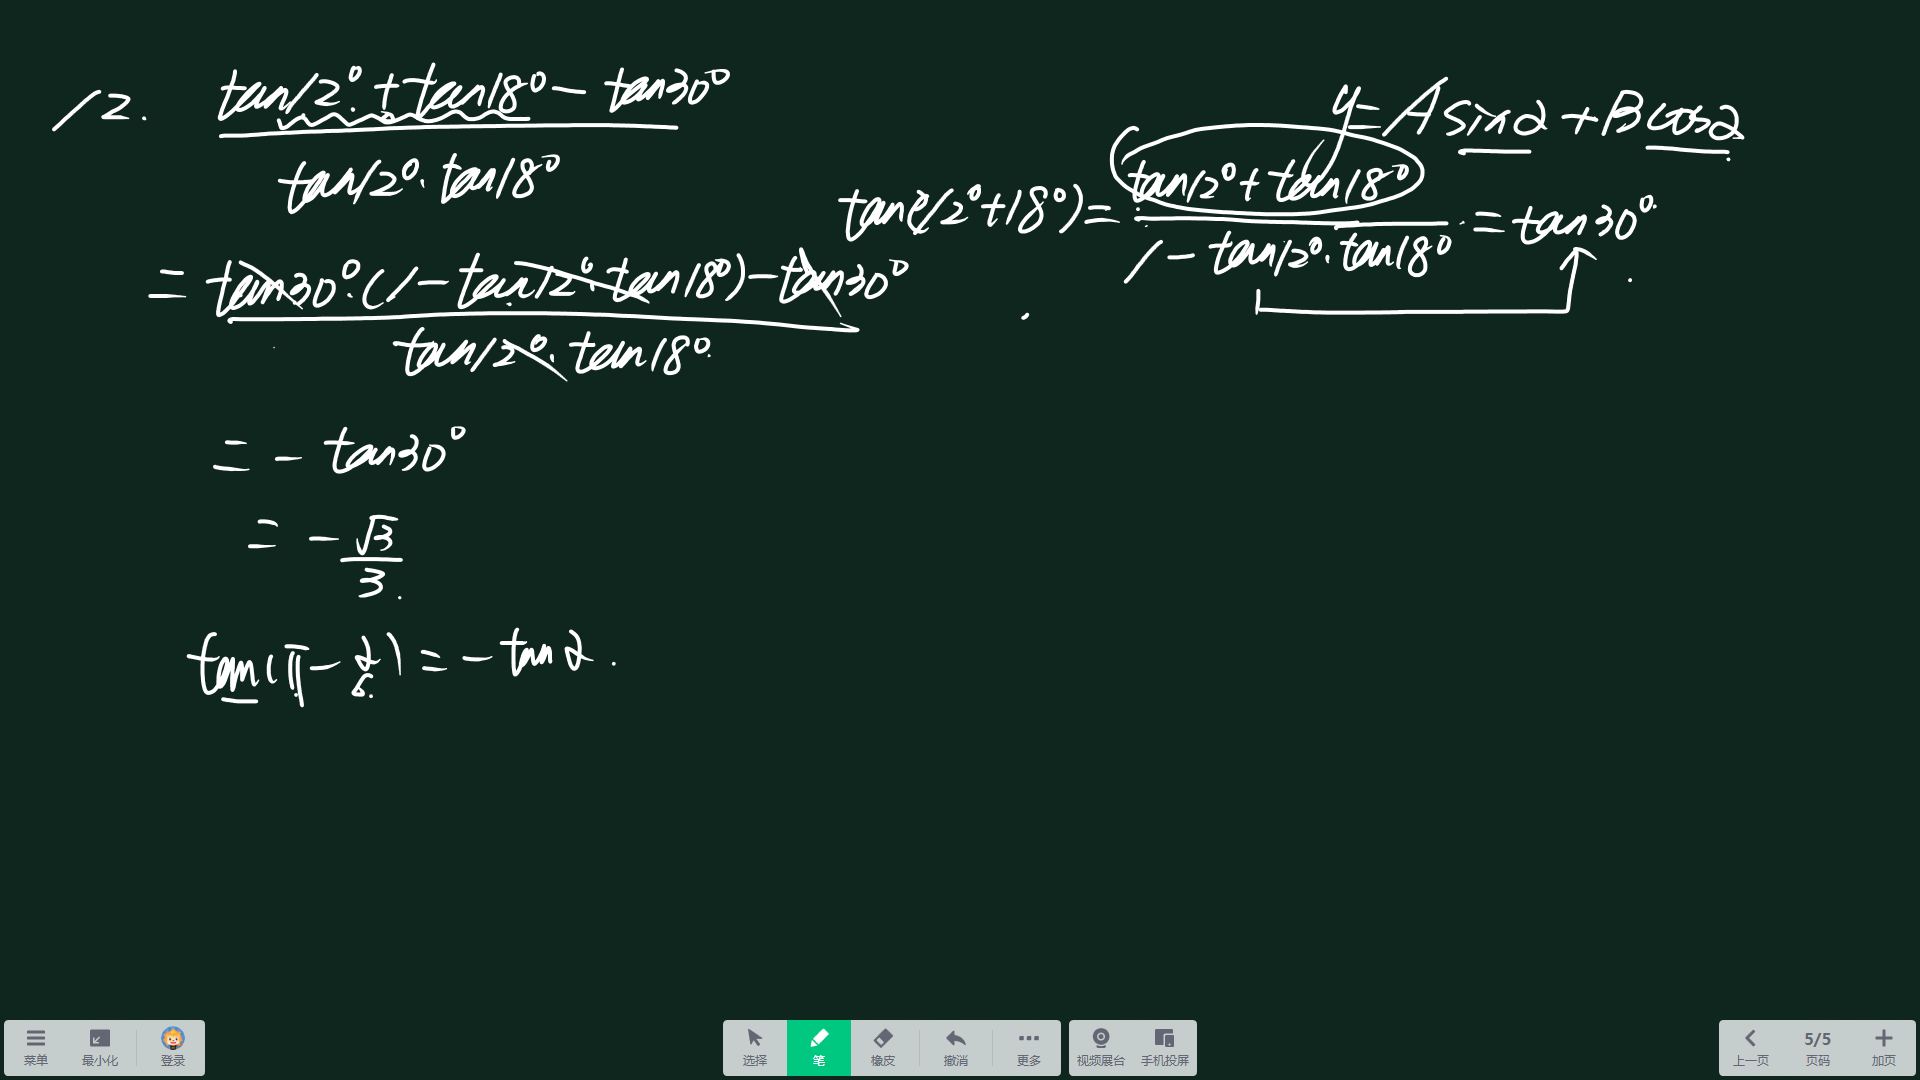 12. (tan12° + tan18° - tan30°) / (tan12°·tan18°)
= (tan30°·(1 - tan12°·tan18°) - tan30°) / (tan12°·tan18°)
= - tan30°
= - √3/3
tan(π - α) = - tanα.
y = A sinα + B cosα
tan(12°+18°) = (tan12° + tan18°) / (1 - tan12°·tan18°) = tan30°.
菜单 最小化 登录
选择 笔 橡皮 撤消 更多
视频展台 手机投屏
上一页 5/5 页码 加页